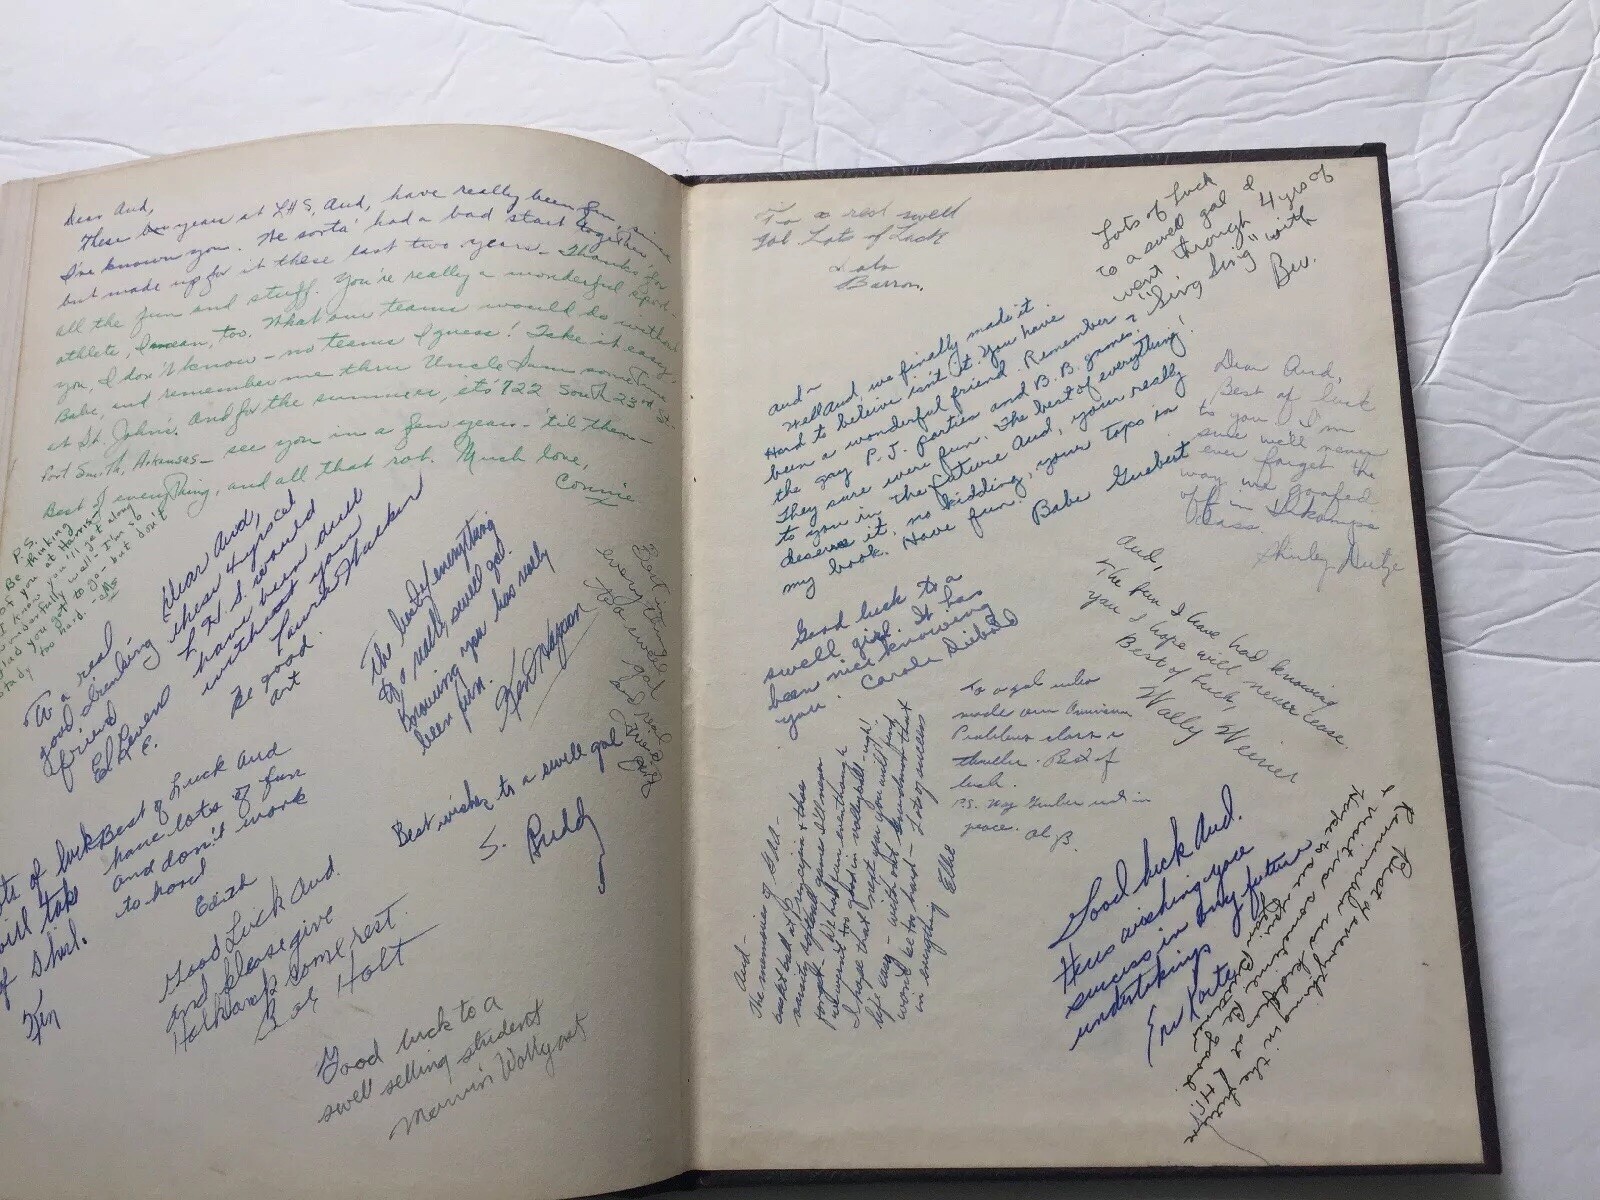 Dear Aud,
These years at LHS, Aud, have really been fun, since
I've known you. We sorta' had a bad start together
but made up for it these last two years — Thanks for
all the fun and stuff. You're really a wonderful sport —
athlete, I mean, too. What our teams would do without
you, I don't know — no teams I guess! Take it easy,
Babe, and remember me thru Uncle Sam sometime
at St. John's. And for the summer, it's 722 South 23rd St.
Fort Smith, Arkansas — see you in a few years — 'til then —
Best of everything, and all that rot. Much love,
Connie
P.S.
Be thinking
of you at Harris
I know you'll get along
wonderfully well — I'm so
glad you got to go — but don't
study too hard.
Dear Aud,
these 4 yrs at
L.H.S. would
have been dull
without you
Be good.
Art
To a real
good drinking
friend
Ed
The best of everything
to a really swell gal.
Knowing you has really
been fun.
Ken
Best in
everything
to a swell gal
and real
friend
Best wishes to a swell gal
S. Buddy
Best of Luck Aud
have lots of fun
and don't work
to hard
Edith
of luck
will take
of Shirl.
Ken
Good Luck Aud.
and please give
some rest.
Bob Holt
Good luck to a
swell selling student
Marvin
To a real swell
gal Lots of Luck
Barron.
Lots of Luck
to a swell gal I
went through 4 yrs of
"Sing Sing" with
Bev.
Aud ~
Well Aud, we finally made it
Hard to believe isn't it. You have
been a wonderful friend. Remember
the gay P.J. parties and B.B. games.
They sure were fun. The best of everything!
to you in the future Aud, your really
deserve it, no kidding, your tops in
my book. Have fun. Babe
Dear Aud,
Best of luck
to you. I'm
sure we'll never
ever forget the
way we goofed
off in
class.
Shirley
Good luck to a
swell girl. It has
been nice knowing
you. Carole
Aud,
The fun I have had knowing
you I hope will never cease.
Best of Luck,
Wally Weiner
To a gal who
made our American
Problems class a
Best of
luck.
P.S. May
peace. Al B.
Aud —
The memories of GAA —
basket ball at and those
games I'll never
forget — We had fun even though
we weren't too good in volleyball — ugh!
I hope that next year you will find
life easy — without that
would be too hard — Lots of success
in everything Ellie
Good luck Aud.
Here's wishing you
success in any future
undertakings
Best of everything in the future
Hope to see you sometime
Be good.